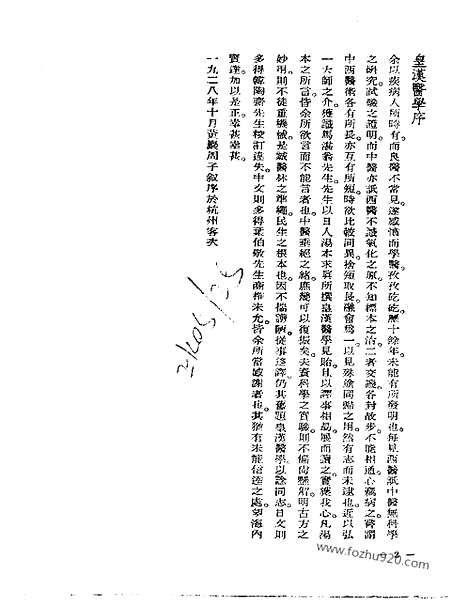 皇漢醫學序
余以疾病人所時有。而良醫不常見。遂感憤而學醫。孜孜矻矻。歷十餘年。未能有所發明也。每見西醫詆中醫無科學
之研究。試驗之證明。而中醫亦詆西醫不識氣化之原。不知標本之治。二者交譏。各封故步。不能相通。心竊病之。嘗謂
中西醫術各有所長。亦互有所短。時欲比較同異。捨短取長。融會為一。以見殊途同歸之用。然有志而未逮也。近以弘
一大師之介。獲識馬湛翁先生。先生以日人湯本求真所撰皇漢醫學見貽。且以譯事相勗。展而讀之。實獲我心。凡湯
本之所言。皆余所欲言而不能言者也。中醫垂絕之緒。庶幾可以復振矣。夫資科學之實驗。則不偏尚懸解。明古方之
妙用。則不徒重機械。是誠醫林之準繩。民生之根本也。因不揣譾陋。從事迻譯。仍其舊題皇漢醫學。以諗同志。日文則
多得韓陶齋先生校訂違失。中文則多得葉伯敬先生商榷未允。皆余所當感謝者也。其猶有未能信達之處。望海內
賢達。加以是正。幸甚幸甚。
一九二八年十月黃巖周子敘序於杭州客次
— 2 —
www.fozhu920.com